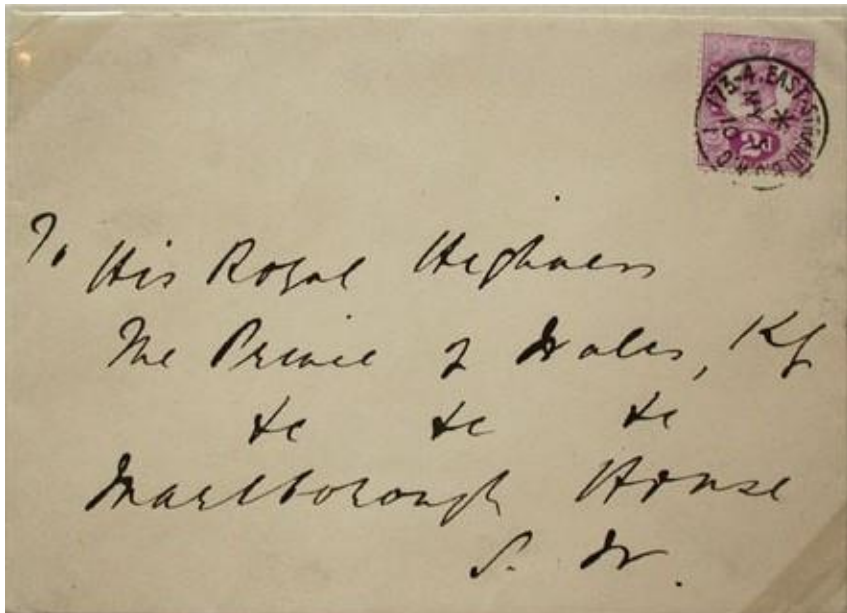 173-4. EAST-STRAND
MY 5
10
2d
To His Royal Highness
The Prince of Wales, KG
&c &c &c
Marlborough House
S. W.